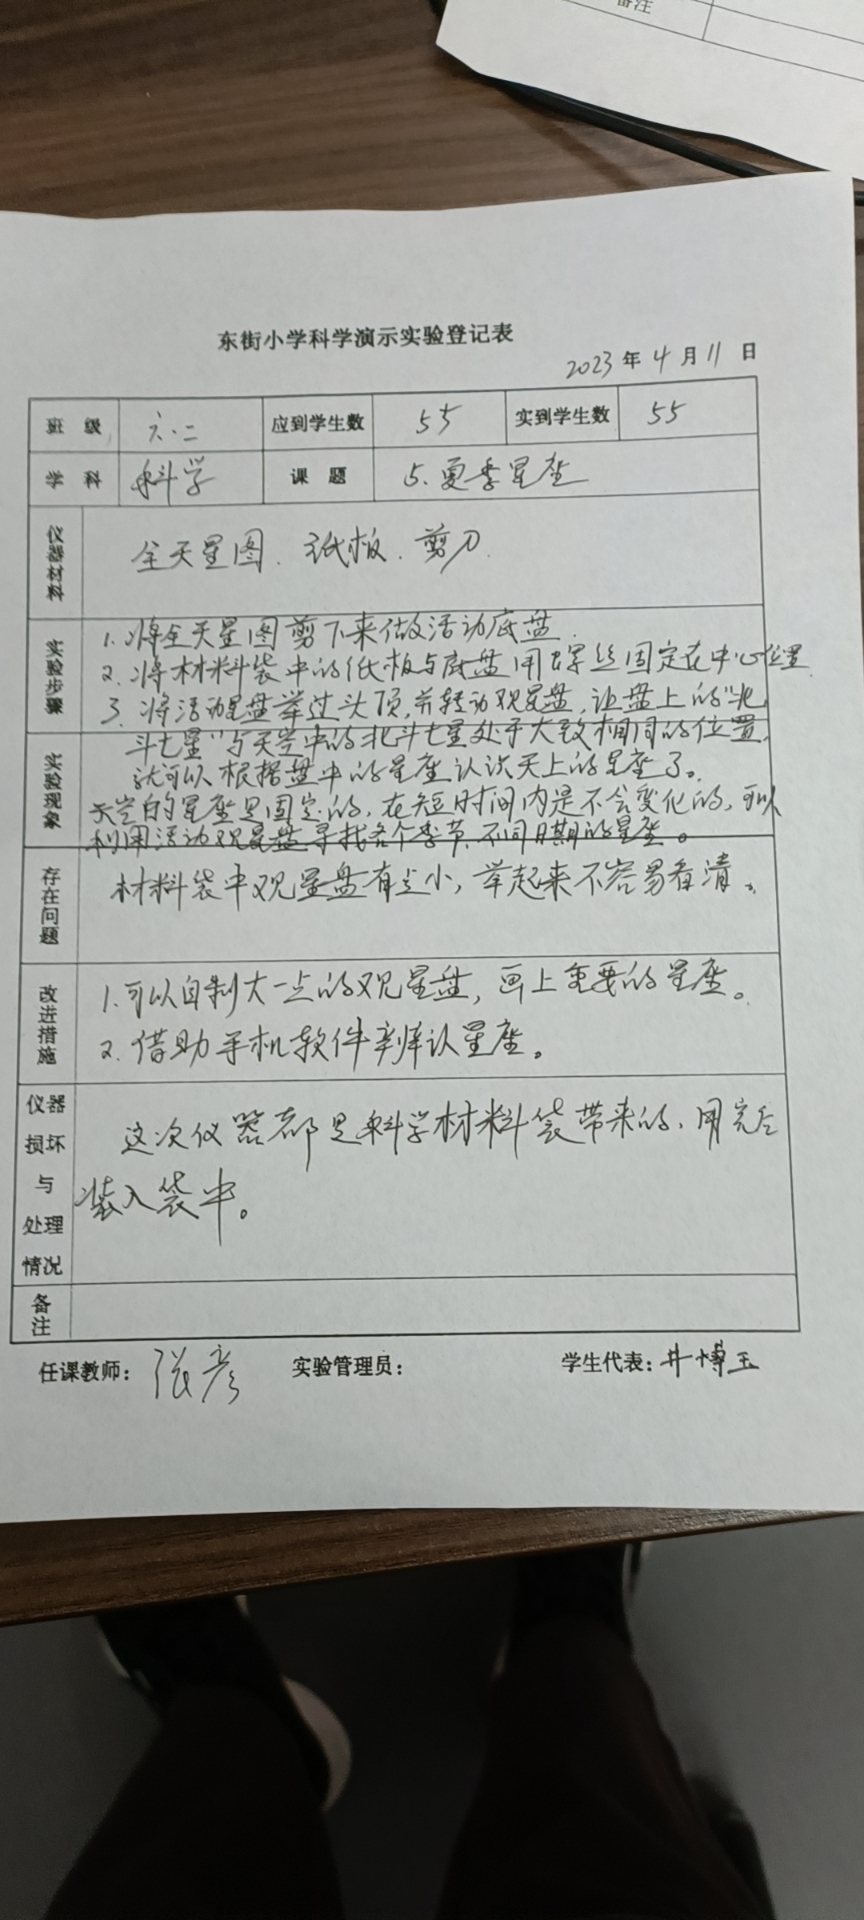 备注
东街小学科学演示实验登记表
2023 年 4 月 11 日
班 级 六.二 应到学生数 55 实到学生数 55
学 科 科学 课 题 5.夏季星座
仪器材料 全天星图、纸板、剪刀
实验步骤
1.将全天星图剪下来做活动底盘
2.将材料袋中的纸板与底盘用螺丝固定在中心位置
3.将活动星盘举过头顶,并转动观星盘,让盘上的“北
斗七星”与天空中的北斗七星处于大致相同的位置,
就可以根据盘中的星座认识天上的星座了。
实验现象
天空白的星座是固定的,在短时间内是不会变化的,可以
利用活动观星盘寻找各个季节、不同日期的星座。
存在问题
材料袋中观星盘有点小,举起来不容易看清。
改进措施
1.可以自制大一点的观星盘,画上重要的星座。
2.借助手机软件辨认星座。
仪器
损坏
与
处理
情况
这次仪器都是科学材料袋带来的,用完后
装入袋中。
备注
任课教师: 张彦 实验管理员: 学生代表: 井博玉